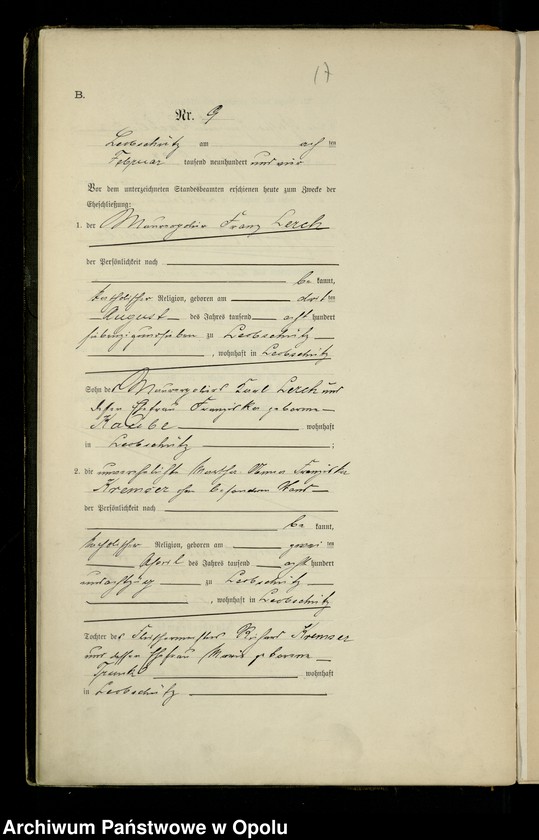 17
B.
Nr. 9
Leobschütz am acht ten
Februar tausend neunhundert und vier
Vor dem unterzeichneten Standesbeamten erschienen heute zum Zwecke der
Eheschließung:
1. der Maurerpolier Franz Lerch
der Persönlichkeit nach
be kannt,
katholischer Religion, geboren am dritten
August des Jahres tausend acht hundert
zu Leobschütz
, wohnhaft in Leobschütz
Sohn des Maurerpoliers Karl Lerch und
dessen Ehefrau Franziska geborene
wohnhaft
in Leobschütz ;
2. die unverehelichte Martha Anna Franziska
Kremser ohne besonderen Stand
der Persönlichkeit nach
be kannt,
katholischer Religion, geboren am zwei ten
April des Jahres tausend acht hundert
undachtzig zu Leobschütz
, wohnhaft in Leobschütz
Tochter des Fleischermeisters Kremser
und dessen Ehefrau Marie geborene
wohnhaft
in Leobschütz
Archiwum Państwowe w Opolu